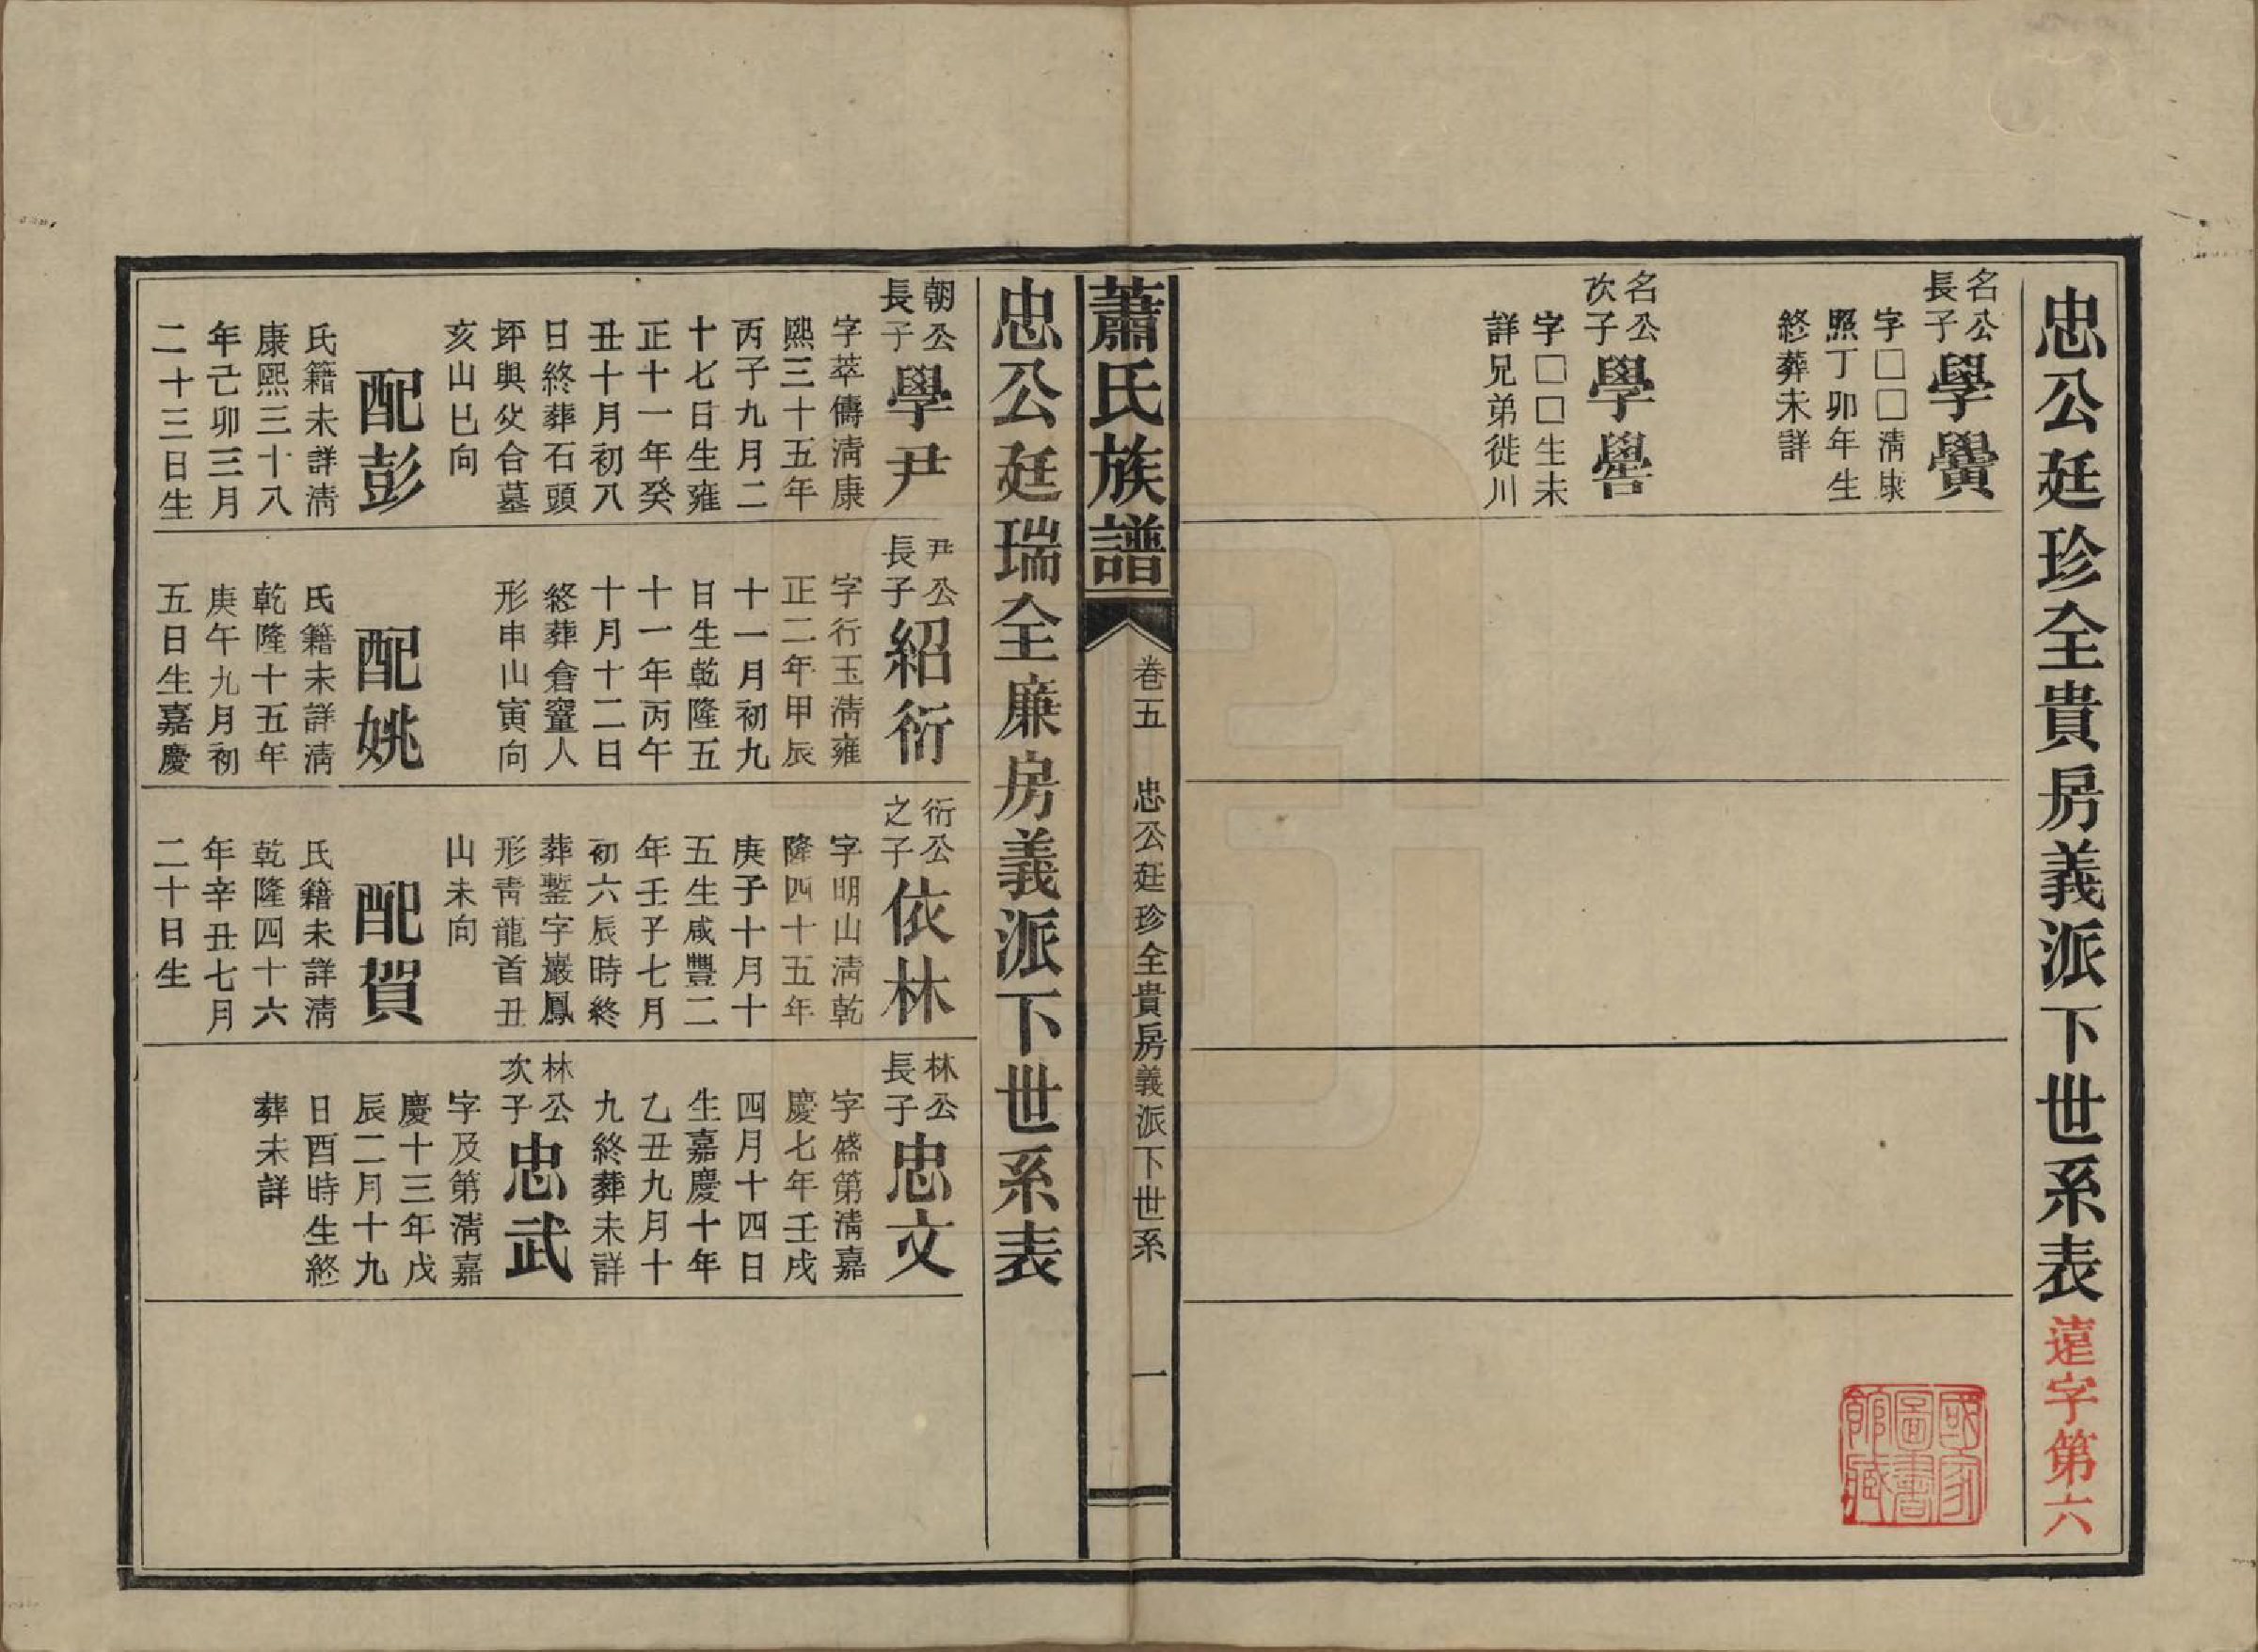 忠公廷珍全貴房義派下世系表
遠字第六
國家圖書館藏
名公長子
學黌
字□□清康
熙丁卯年生
終葬未詳
名公次子
學嚳
字□□生未
詳兄弟徙川
蕭氏族譜
卷五
忠公廷珍全貴房義派下世系
一
忠公廷瑞全廉房義派下世系表
朝公長子
學尹
字萃儔清康
熙三十五年
丙子九月二
十七日生雍
正十一年癸
丑十月初八
日終葬石頭
坪與父合墓
亥山巳向
配彭
氏籍未詳淸
康熙三十八
年己卯三月
二十三日生
尹公長子
紹衍
字行玉淸雍
正二年甲辰
十一月初九
日生乾隆五
十一年丙午
十月十二日
終葬倉窰人
形申山寅向
配姚
氏籍未詳淸
乾隆十五年
庚午九月初
五日生嘉慶
衍公之子
依林
字明山淸乾
隆四十五年
庚子十月十
五生咸豐二
年壬子七月
初六辰時終
葬鏨字巖鳳
形靑龍首丑
山未向
配賀
氏籍未詳淸
乾隆四十六
年辛丑七月
二十日生
林公長子
忠文
字盛第淸嘉
慶七年壬戌
四月十四日
生嘉慶十年
乙丑九月十
九終葬未詳
林公次子
忠武
字及第淸嘉
慶十三年戊
辰二月十九
日酉時生終
葬未詳